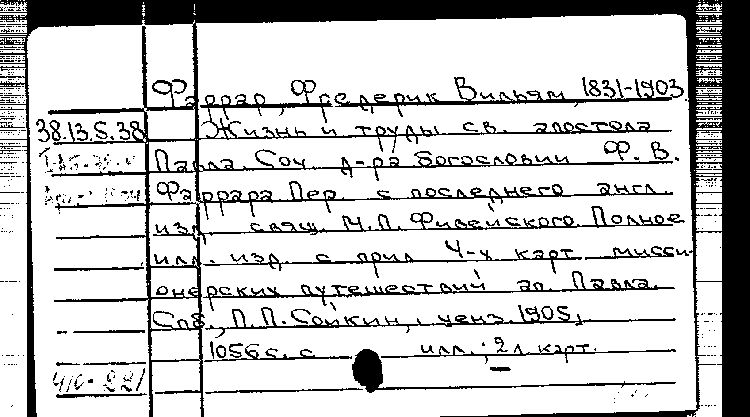 Фаррар, Фредерик Вильям, 1831-1903.
38.13.5.38 Жизнь и труды св. апостола
Павла. Соч. д-ра богословии Ф. В.
Фаррара. Пер. с последнего англ.
изд. свящ. М.П. Фивейского. Полное
илл. изд. с прил. 4-х карт мисси-
онерских путешествий ап. Павла.
Спб., П.П. Сойкин, ценз. 1905,
1056 с. с илл.; 2 л. карт.